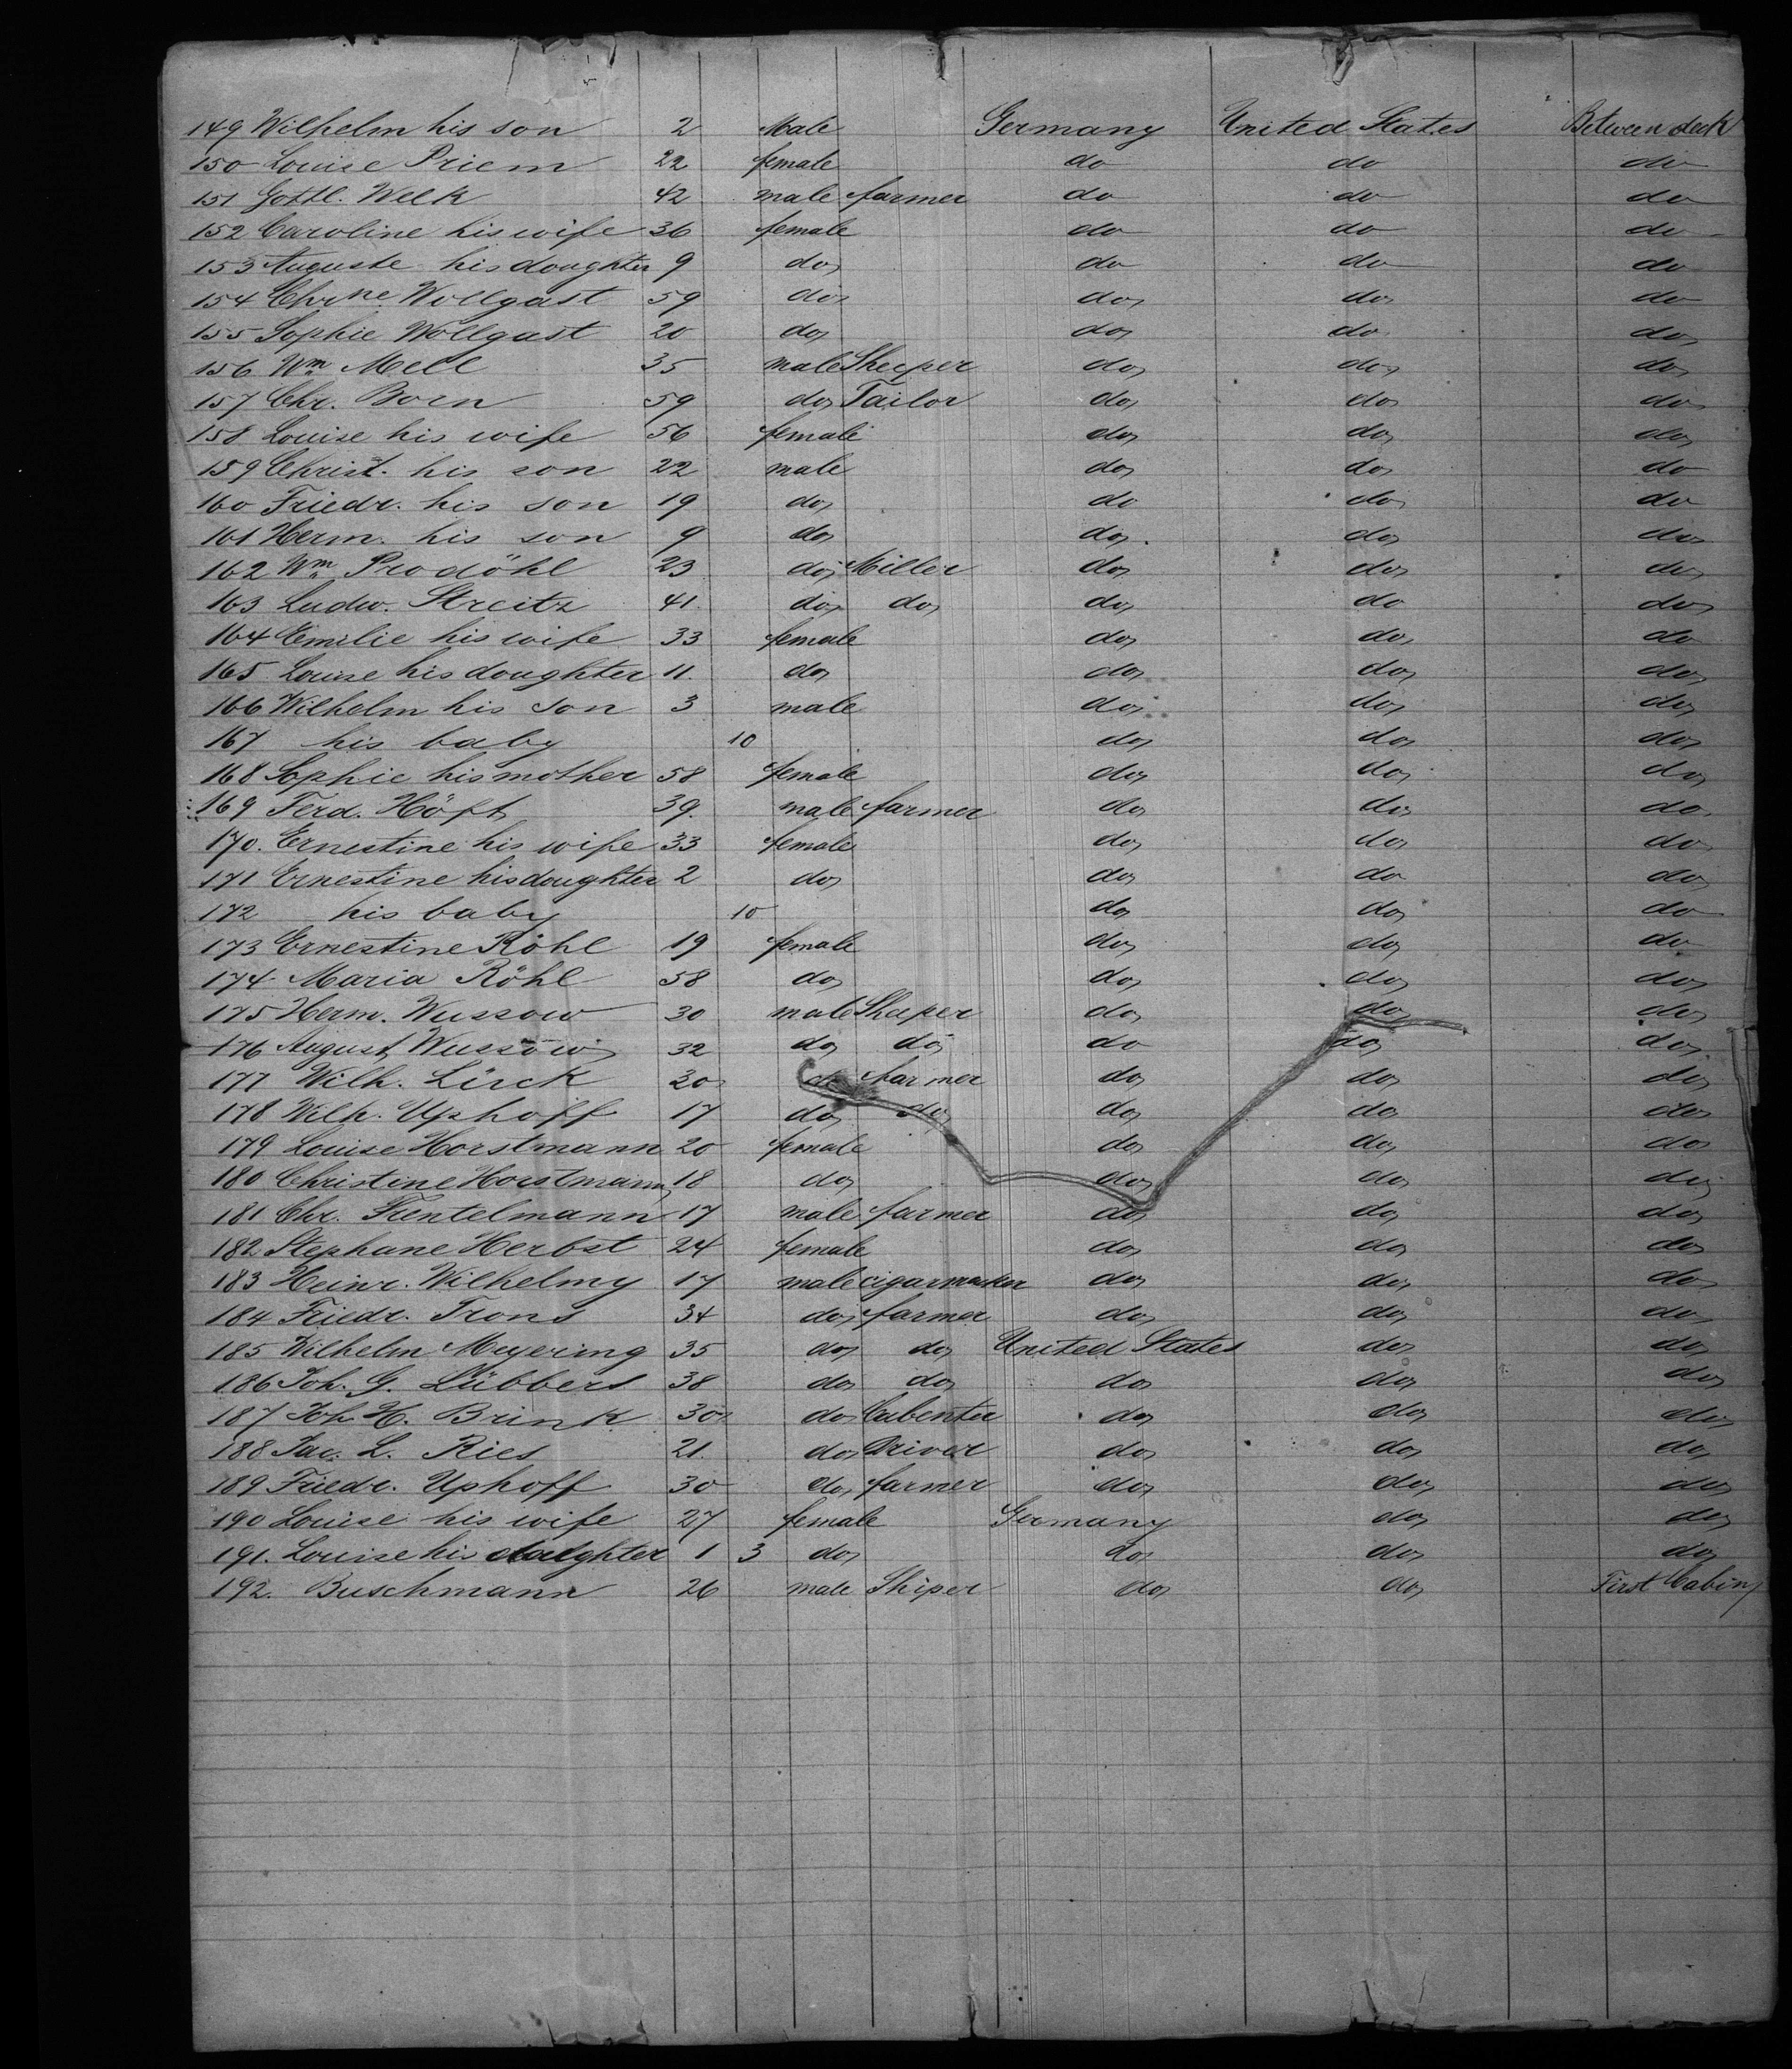 149 Wilhelm his son 2 Male Germany United States Between deck
150 Louise Priem 22 female do do do
151 Gottl. Welk 42 male farmer do do do
152 Caroline his wife 36 female do do do
153 Auguste his doughter 9 do do do do
154 Chrne Wollgast 59 do do do do
155 Sophie Wollgast 20 do do do do
156 Wm Mell 35 male Sheeper do do do
157 Chr. Born 59 do Tailor do do do
158 Louise his wife 56 female do do do
159 Christ. his son 22 male do do do
160 Friedr. his son 19 do do do do
161 Herm. his son 9 do do do do
162 Wm Prodöhl 23 do Miller do do do
163 Ludw. Streitz 41 do do do do do
164 Emilie his wife 33 female do do do
165 Louise his doughter 11. do do do do
166 Wilhelm his son 3 male do do do
167 his baby 10 do do do
168 Sophie his mother 58 female do do do
169 Ferd. Höft 39. male farmer do do do
170. Ernestine his wife 33 female do do do
171 Ernestine his doughter 2 do do do do
172 his baby 10 do do do
173 Ernestine Röhl 19 female do do do
174 Maria Röhl 58 do do do do
175 Herm. Wussow 30 male Sheeper do do do
176 August Wussow 32 do do do do do
177 Wilh. Lürck 20 do farmer do do do
178 Wilh. Uphoff 17 do do do do do
179 Louise Horstmann 20 female do do do
180 Christine Horstmann 18 do do do do
181 Chr. Fentelmann 17 male farmer do do do
182 Stephane Herbst 24 female do do do
183 Heinr. Wilhelmy 17 male cigarmaker do do do
184 Friedr. Trons 34 do farmer do do do
185 Wilhelm Meyering 35 do do United States do do
186 Joh. G. Lübbers 38 do do do do do
187 Joh H. Brink 30 do Cabenter do do do
188 Jac. L. Ries 21. do Driver do do do
189 Friedr. Uphoff 30 do farmer do do do
190 Louise his wife 27 female Germany do do
191. Louise his daughter 1 3 do do do do
192. Buschmann 26 male Shiper do do First Cabin